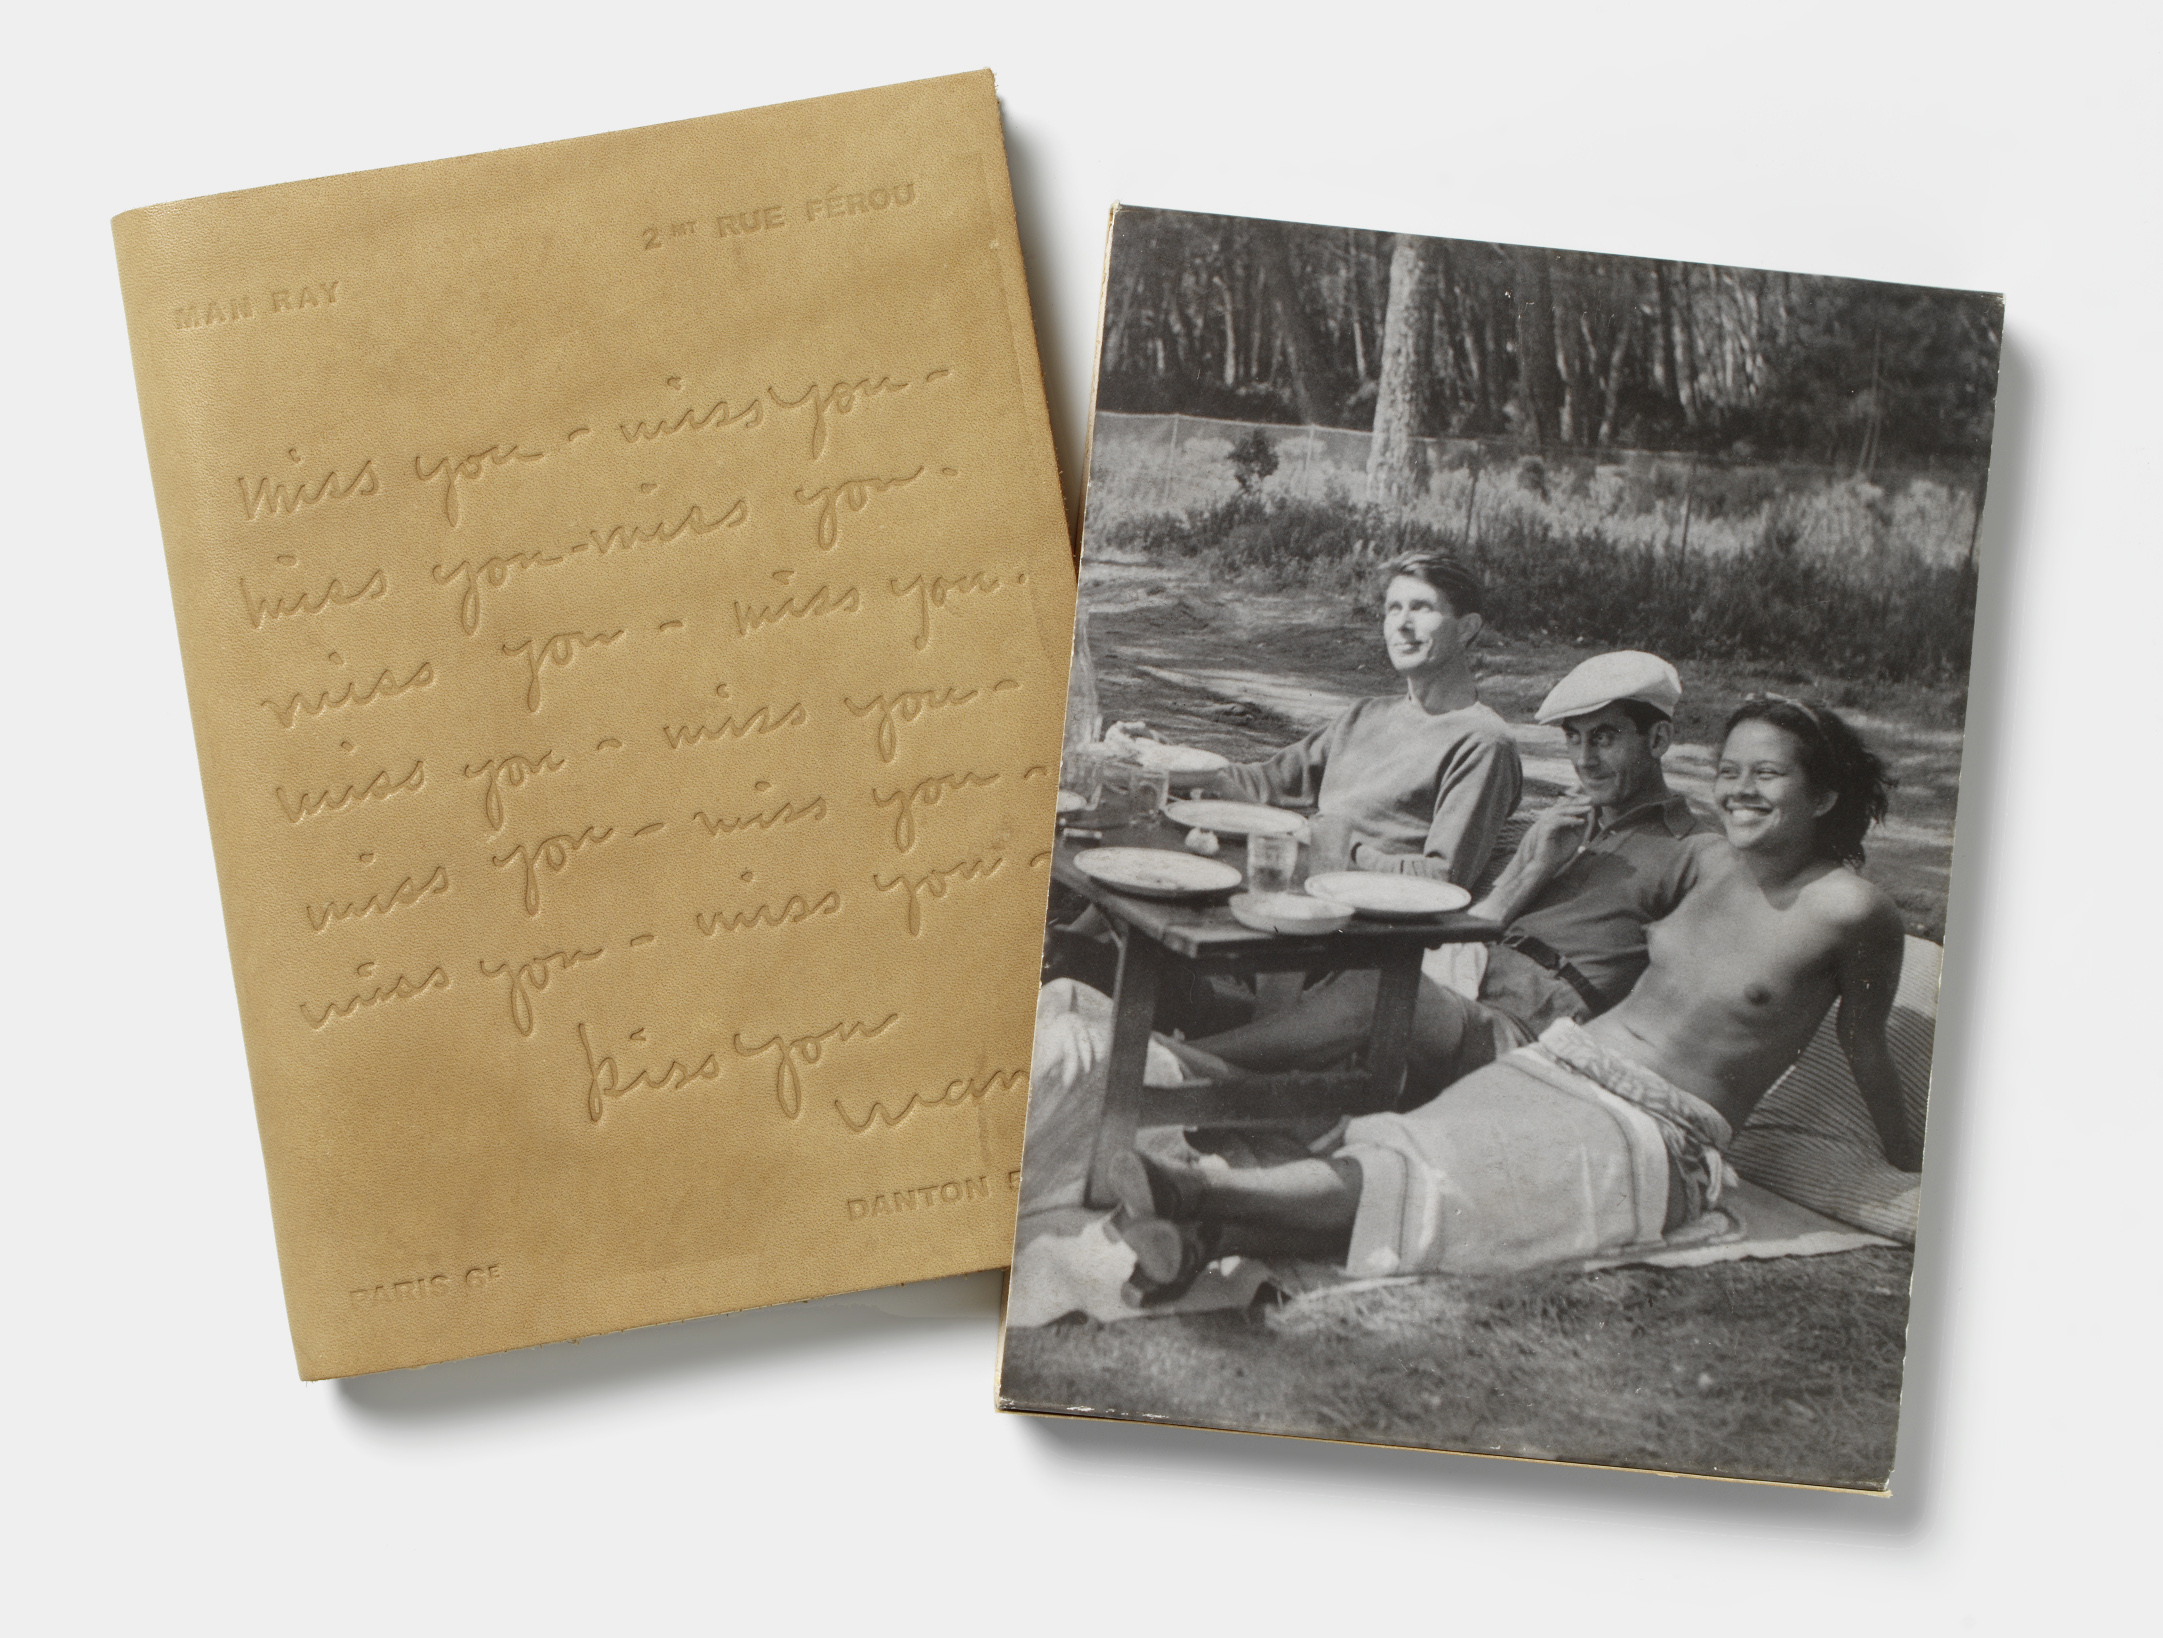 2 MT RUE FÉROU
MAN RAY
miss you - miss you -
miss you - miss you.
miss you - miss you.
miss you - miss you -
miss you - miss you -
miss you - miss you -
kiss you
man
DANTON
PARIS 6E